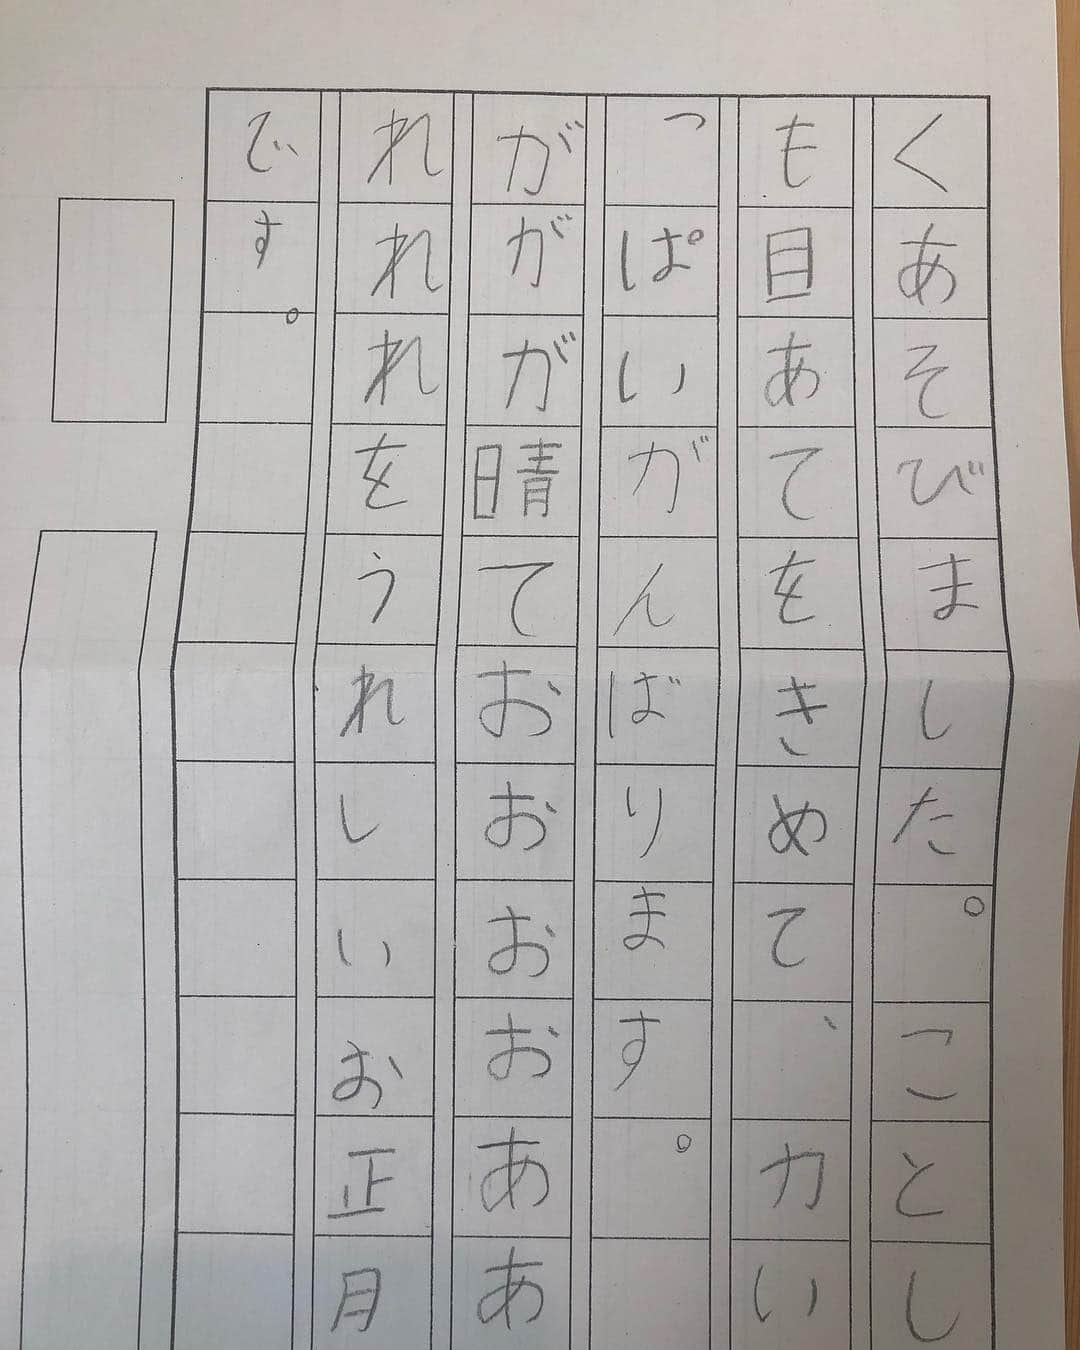 くあそびました。ことし
も目あてをきめて、力い
っぱいがんばります。
がががが晴ておおおおああ
れれれをうれしいお正月
です。